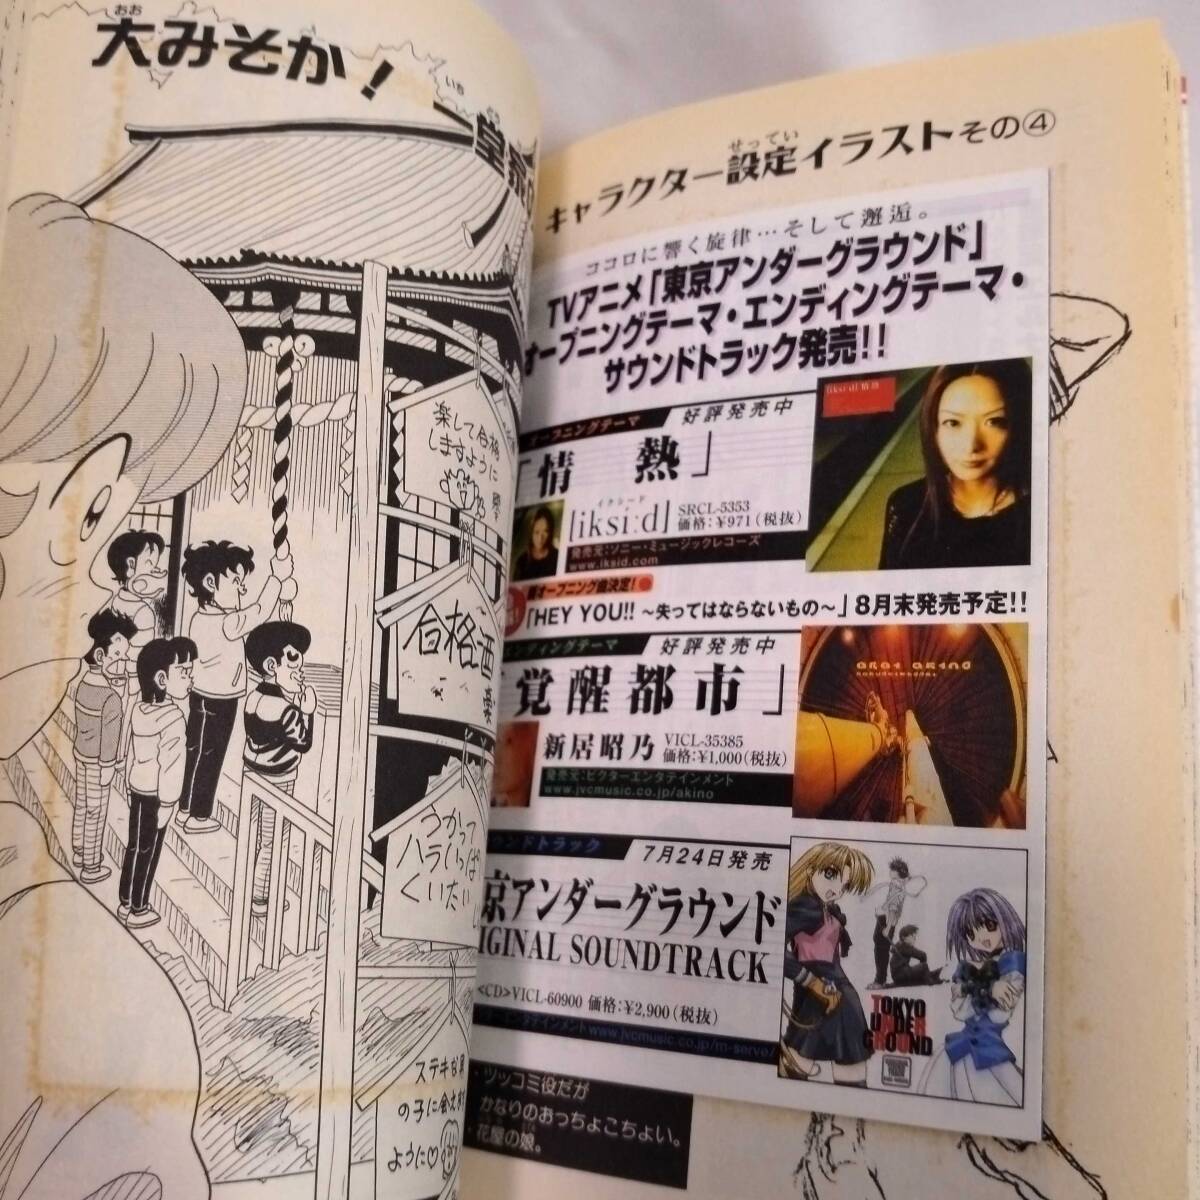 大みそか!
おお
楽して合格
しますように
合格酒
うかって
いっぱい
ハラ
くいたい
ステキな男
の子に会えます
ように♡
キャラクター設定イラストその④
せってい
ココロに響く旋律…そして邂逅。
TVアニメ「東京アンダーグラウンド」
オープニングテーマ・エンディングテーマ・
サウンドトラック発売!!
オープニングテーマ 好評発売中
「情 熱」
イクシード
[iksi:d] SRCL-5353
価格:¥971(税抜)
発売元:ソニー・ミュージックレコーズ
www.iksid.com
iksi:d 情熱
新オープニング曲決定!
「HEY YOU!! ～失ってはならないもの～」8月末発売予定!!
エンディングテーマ 好評発売中
覚醒都市」
新居昭乃 VICL-35385
価格:¥1,000(税抜)
発売元:ビクターエンタテインメント
www.jvcmusic.co.jp/akino
arai akino
ンドトラック 7月24日発売
京アンダーグラウンド
IGINAL SOUNDTRACK
<CD>VICL-60900 価格:¥2,900(税抜)
ーエンタテインメント www.jvcmusic.co.jp/m-serve/
TOKYO
UNDER
GROUND
・ツッコミ役だが
かなりのおっちょこちょい。
・花屋の娘。